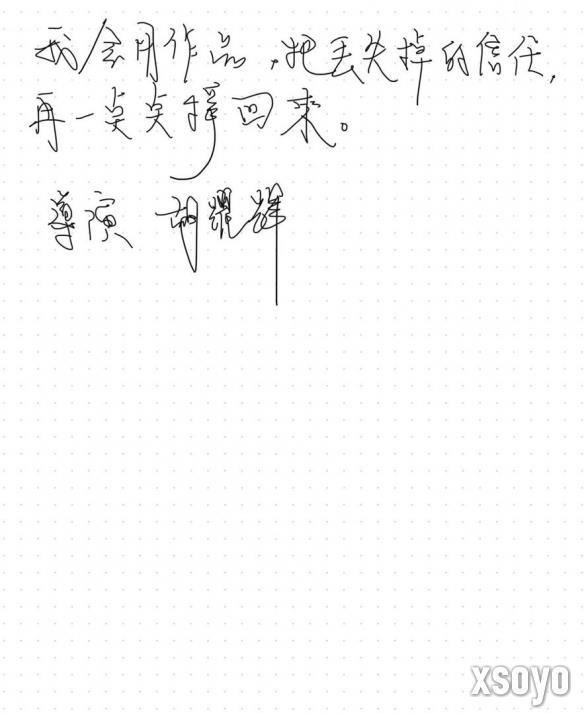 我会用作品,把丢失掉的信任,
再一点点撑回来。
導演 胡耀輝
xsoyo